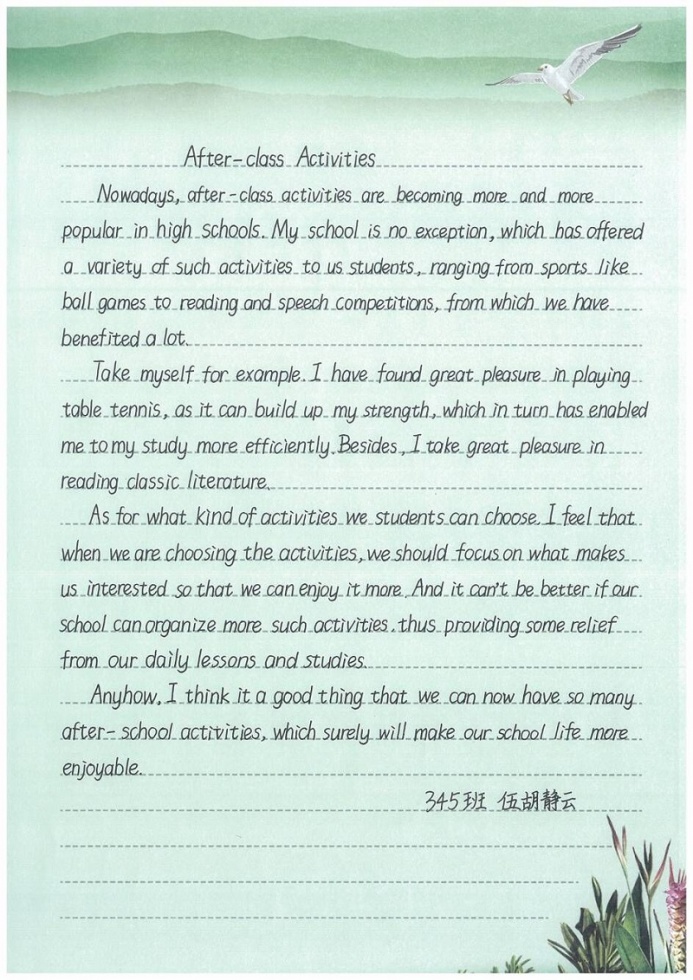 After-class Activities
Nowadays, after-class activities are becoming more and more
popular in high schools. My school is no exception, which has offered
a variety of such activities to us students, ranging from sports like
ball games to reading and speech competitions, from which we have
benefited a lot.
Take myself for example. I have found great pleasure in playing
table tennis, as it can build up my strength, which in turn has enabled
me to my study more efficiently. Besides, I take great pleasure in
reading classic literature.
As for what kind of activities we students can choose. I feel that
when we are choosing the activities, we should focus on what makes
us interested so that we can enjoy it more. And it can't be better if our
school can organize more such activities. thus providing some relief
from our daily lessons and studies.
Anyhow. I think it a good thing that we can now have so many
after-school activities, which surely will make our school life more
enjoyable.
345班 伍胡静云